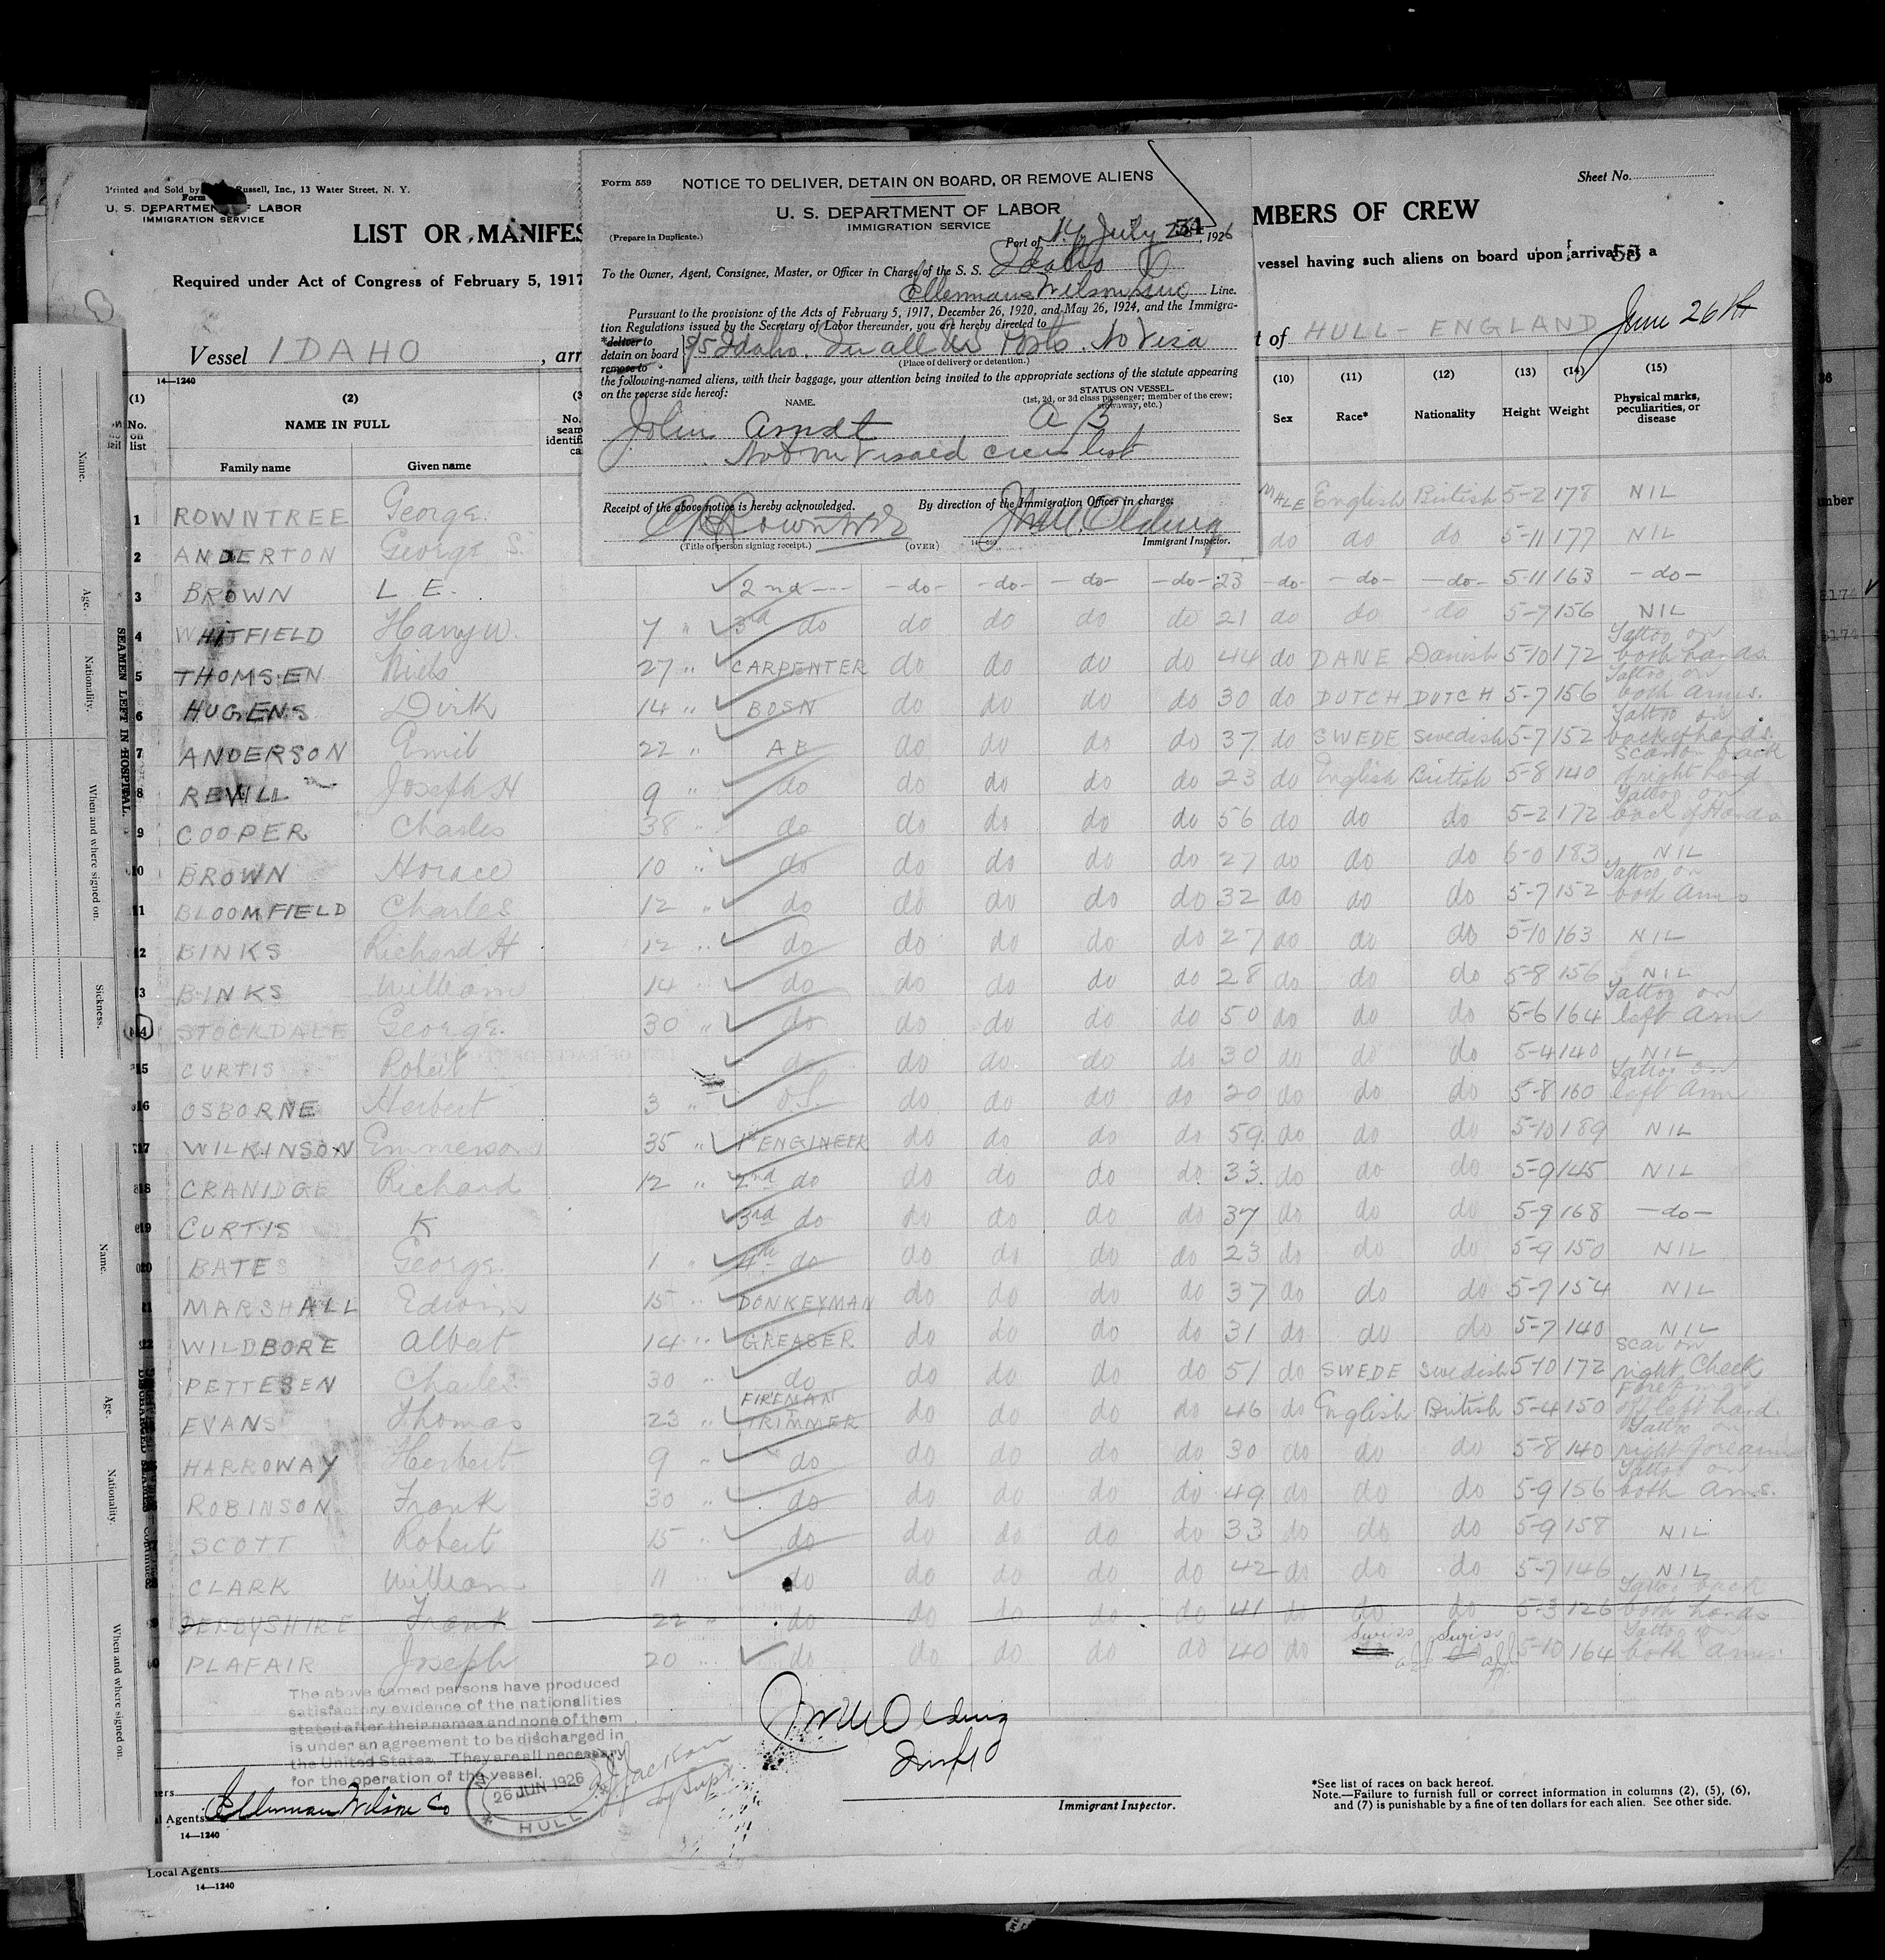 Printed and Sold by Russell, Inc., 13 Water Street, N. Y.
Form
U. S. DEPARTMENT OF LABOR
IMMIGRATION SERVICE
Sheet No.
LIST OR MANIFES
MBERS OF CREW
Required under Act of Congress of February 5, 1917
vessel having such aliens on board upon arrival at a
53
Vessel IDAHO, arr
t of HULL - ENGLAND June 26th
14—1240
Form 559
NOTICE TO DELIVER, DETAIN ON BOARD, OR REMOVE ALIENS
U. S. DEPARTMENT OF LABOR
IMMIGRATION SERVICE
54
(Prepare in Duplicate.)
Port of N.Y. July 1926
To the Owner, Agent, Consignee, Master, or Officer in Charge of the S. S. Idaho
Ellermans Wilson Line Line.
Pursuant to the provisions of the Acts of February 5, 1917, December 26, 1920, and May 26, 1924, and the Immigra-
tion Regulations issued by the Secretary of Labor thereunder, you are hereby directed to
*deliver to
detain on board S/S Idaho. In all US Ports. No Visa
remove to
(Place of delivery or detention.)
the following-named aliens, with their baggage, your attention being invited to the appropriate sections of the statute appearing
on the reverse side hereof:
NAME.
STATUS ON VESSEL.
(1st, 2d, or 3d class passenger; member of the crew;
stowaway, etc.)
John Arndt A B
Not on visaed crew list
Receipt of the above notice is hereby acknowledged.
By direction of the Immigration Officer in charge:
G Rowntree
Jno. M. Olding
(Title of person signing receipt.)
(OVER)
Immigrant Inspector.
(1) (2) (3 (10) (11) (12) (13) (14) (15)
No. on list
NAME IN FULL
Family name
Given name
Sex Race* Nationality Height Weight Physical marks, peculiarities, or disease
1 ROWNTREE George MALE English British 5-2 178 NIL
2 ANDERTON George S. do do do 5-11 177 NIL
3 BROWN L E. 2nd -do- -do- -do- -do- 23 -do- -do- -do- 5-11 163 -do-
4 WHITFIELD Harry W. 7 " 3rd do do do do do 21 do do do 5-7 156 NIL
5 THOMSEN Niels 27 " CARPENTER do do do do 44 do DANE Danish 5-10 172 Tattoo on both hands.
6 HUGENS Dirk 14 " BOSN do do do do 30 do DUTCH DUTCH 5-7 156 Tattoo on both arms.
7 ANDERSON Emil 22 " AB do do do do 37 do SWEDE Swedish 5-7 152 Tattoo on back of hands.
8 REVILL Joseph H 9 " do do do do do 23 do English British 5-8 140 Scar on back of right hand
9 COOPER Charles 38 " do do do do do 56 do do do 5-2 172 Tattoo on back of Hands
10 BROWN Horace 10 " do do do do do 27 do do do 6-0 183 NIL
11 BLOOMFIELD Charles 12 " do do do do do 32 do do do 5-7 152 Tattoo on both Arms
12 BINKS Richard H 12 " do do do do do 27 do do do 5-10 163 NIL
13 BINKS William 14 " do do do do do 28 do do do 5-8 156 NIL
14 STOCKDALE George. 30 " do do do do do 50 do do do 5-6 164 Tattoo on left Arm
15 CURTIS Robert do do do do do 30 do do do 5-4 140 NIL
16 OSBORNE Herbert 3 " O.S. do do do do 20 do do do 5-8 160 Tattoo on left Arm
17 WILKINSON Emmerson 35 " 1st ENGINEER do do do do 59 do do do 5-10 189 NIL
18 CRANIDGE Richard 12 " 2nd do do do do do 33 do do do 5-9 145 NIL
19 CURTIS K 3rd do do do do do 37 do do do 5-9 168 -do-
20 BATES George. 1 " 4th do do do do do 23 do do do 5-9 150 NIL
21 MARSHALL Edwin 15 " DONKEYMAN do do do do 37 do do do 5-7 154 NIL
22 WILDBORE Albert 14 " GREASER do do do do 31 do do do 5-7 140 NIL
PETTESEN Charles 30 " do do do do do 51 do SWEDE Swedish 5-10 172 Scar on right Cheek
EVANS Thomas 23 " FIREMAN TRIMMER do do do do 46 do English British 5-4 150 of left hand.
HARROWAY Herbert 9 " do do do do do 30 do do do 5-8 140 Tattoo on right forearm
ROBINSON Frank 30 " do do do do do 49 do do do 5-9 156 Tattoo on both Arms.
SCOTT Robert 15 " do do do do do 33 do do do 5-9 158 NIL
CLARK William 11 " do do do do do 42 do do do 5-7 146 NIL
DERBYSHIRE Frank 22 " do do do do do 41 do do do 5-3 126 Tattoo back both hands
PLAFAIR Joseph 20 " do do do do do 40 do Swiss Swiss 5-10 164 Tattoo on both arms
The above named persons have produced
satisfactory evidence of the nationalities
stated after their names and none of them
is under an agreement to be discharged in
the United States. They are all necessary
for the operation of the vessel.
26 JUN 1926
HULL
Jno M Olding
Insp
l Agents Ellerman Wilson Co
14—1240
Immigrant Inspector.
*See list of races on back hereof.
Note.—Failure to furnish full or correct information in columns (2), (5), (6),
and (7) is punishable by a fine of ten dollars for each alien. See other side.
Local Agents
14—1240
SEAMEN LEFT IN HOSPITAL.
Name.
Age.
Nationality.
When and where signed on.
Sickness.
Name.
Age.
Nationality.
When and where signed on.